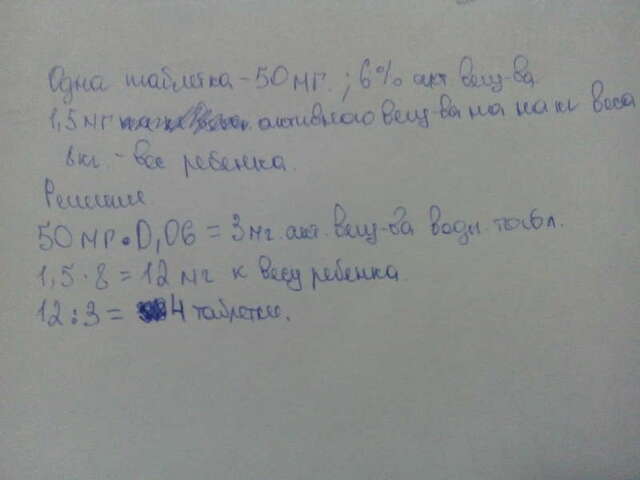 Одна таблетка - 50 мг.; 6% акт вещ-ва
1,5 мг активного вещ-ва на на кг веса
8кг. - вес ребенка.
Решение
50 мг • 0,06 = 3 мг. акт. вещ-ва водн. табл.
1,5 · 8 = 12 мг к весу ребенка
12 : 3 = 4 таблетки.